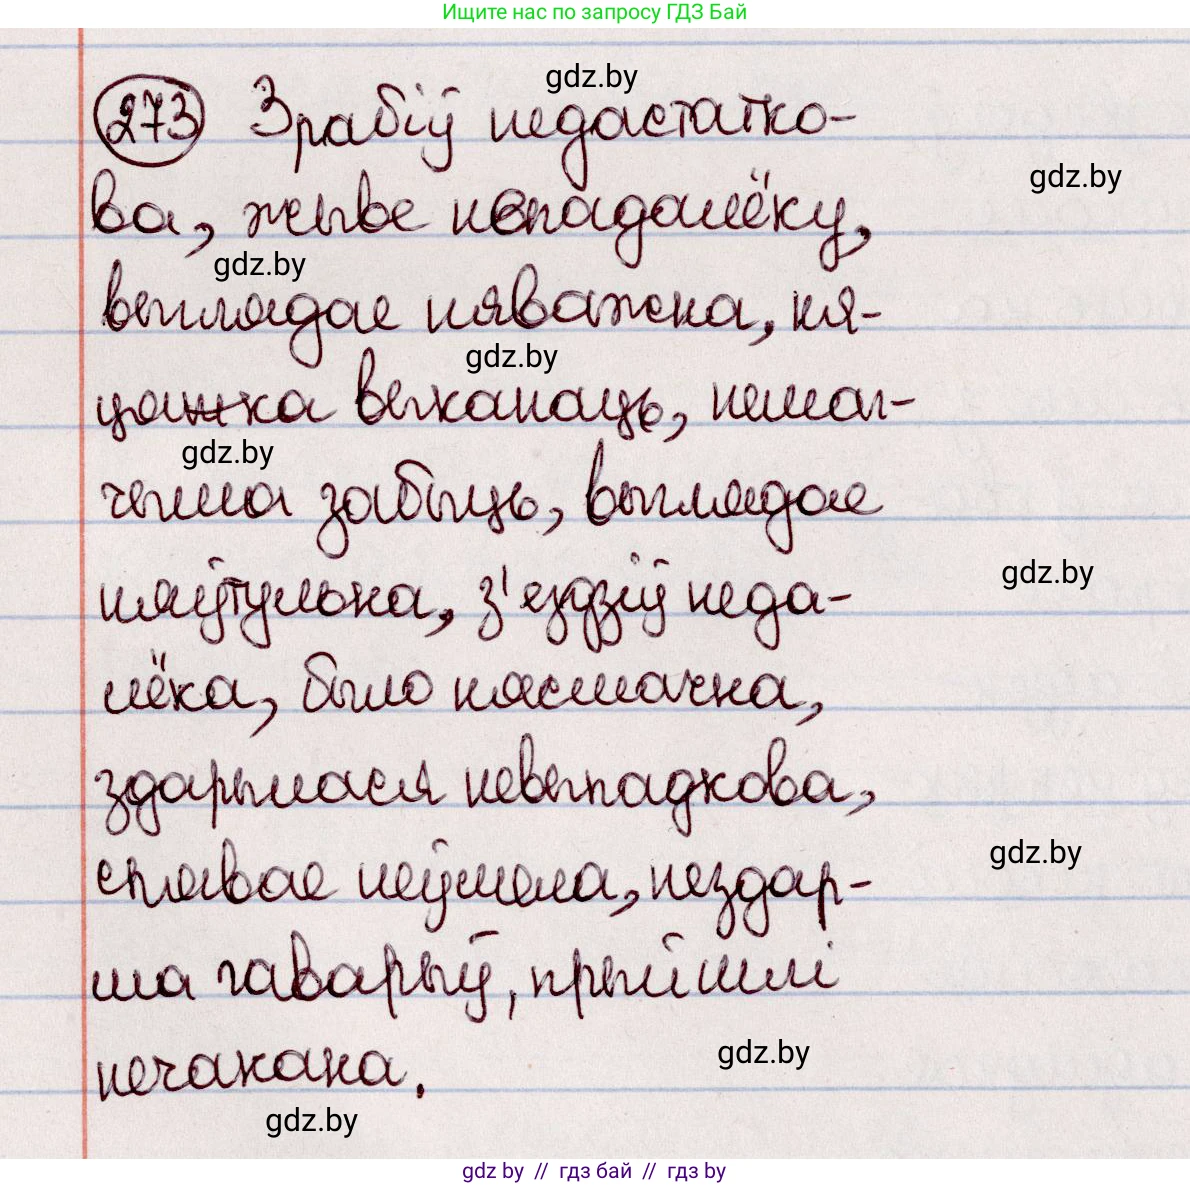 Ищите нас по запросу ГДЗ Бай
gdz.by
273 Зрабіў недастатко-
gdz.by
ва, жыве непадалёку,
gdz.by
выглядае няважна, ня-
gdz.by
цяжка выканаць, немаг-
gdz.by
чыма забыць, выглядае
няўтульна, з'ездзіў неда-
gdz.by
лёка, было нясмачна,
здарылася невыпадкова,
gdz.by
спявае неўмела, нездар-
ма гаварыў, прыйшлі
gdz.by
нечакана.
gdz.by
gdz by // гдз бай // гдз by